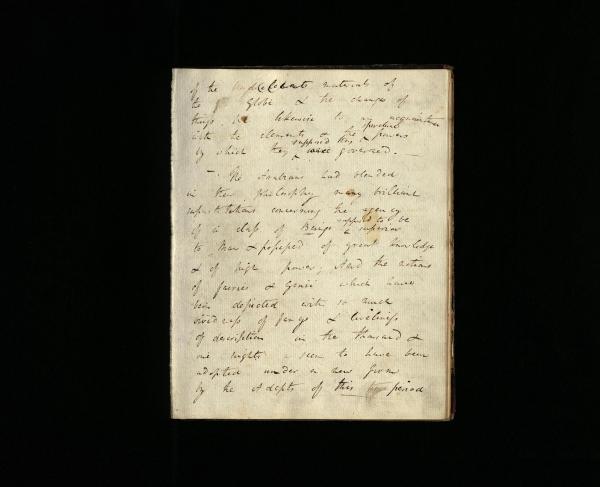 of the materials of
the Globe & the changes of
things. & likewise to an acquaintance
with the elements & the spiritual powers
by which they supposed they were governed. —
— The Arabians had blended
in their philosophy many brilliant
superstitions concerning the agency
of a class of Beings supposed to be superior
to Man & possessed of great knowledge
& of high power; And the notions
of fairies & Genii which have
been depicted with so much
vividness of fancy & liveliness
of description in the thousand &
one nights seem to have been
adopted under a new form
by the Adepts of this period